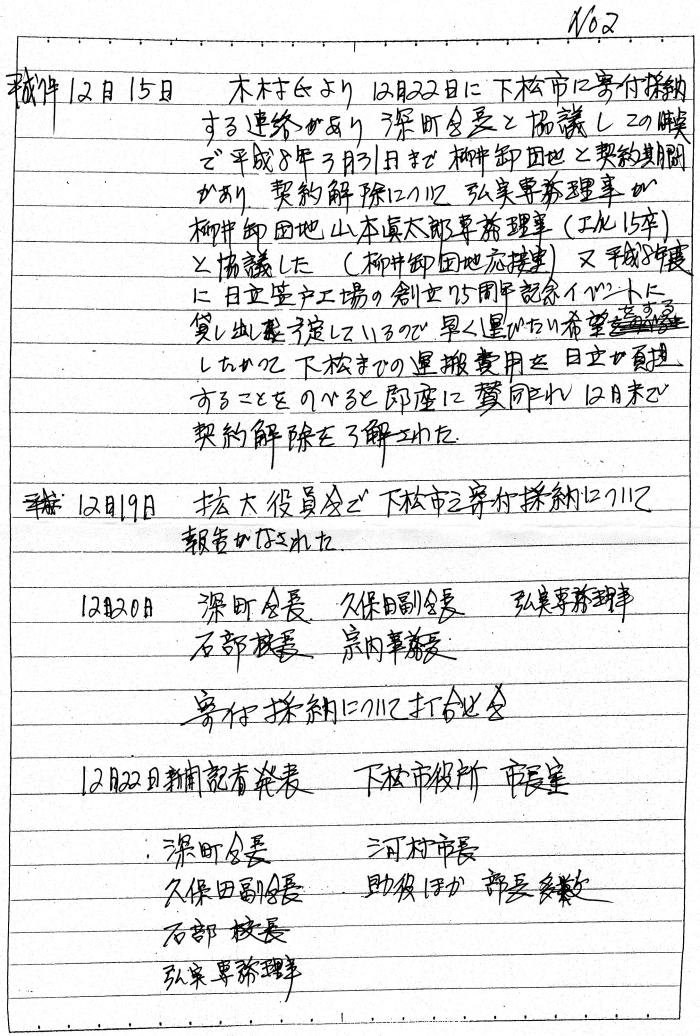 No2
平成7年 12月15日 木村氏より 12月22日に 下松市に寄付採納
する連絡があり 深町会長と協議しこの時点
で平成8年3月31日まで 柳井卸団地と契約期間
があり 契約解除について 弘実専務理事が
柳井卸団地 山本眞太郎専務理事 (工化15卒)
と協議した (柳井卸団地応接室) 又 平成8年度
に 日立笠戸工場の創立75周年記念イベントに
貸し出し予定しているので 早く運びたい希望をする
したがって 下松までの運搬費用を 日立が負担
することをのべると即座に 賛同され 12月末で
契約解除を了解された.
平成 12月19日 拡大役員会で 下松市に寄付採納について
報告がなされた.
12月20日 深町会長 久保田副会長 弘実専務理事
石部校長 宗内事務長
寄付採納について打合せ会
12月22日 新聞記者発表 下松市役所 市長室
深町会長 河村市長
久保田副会長 助役ほか 部長多数
石部校長
弘実専務理事